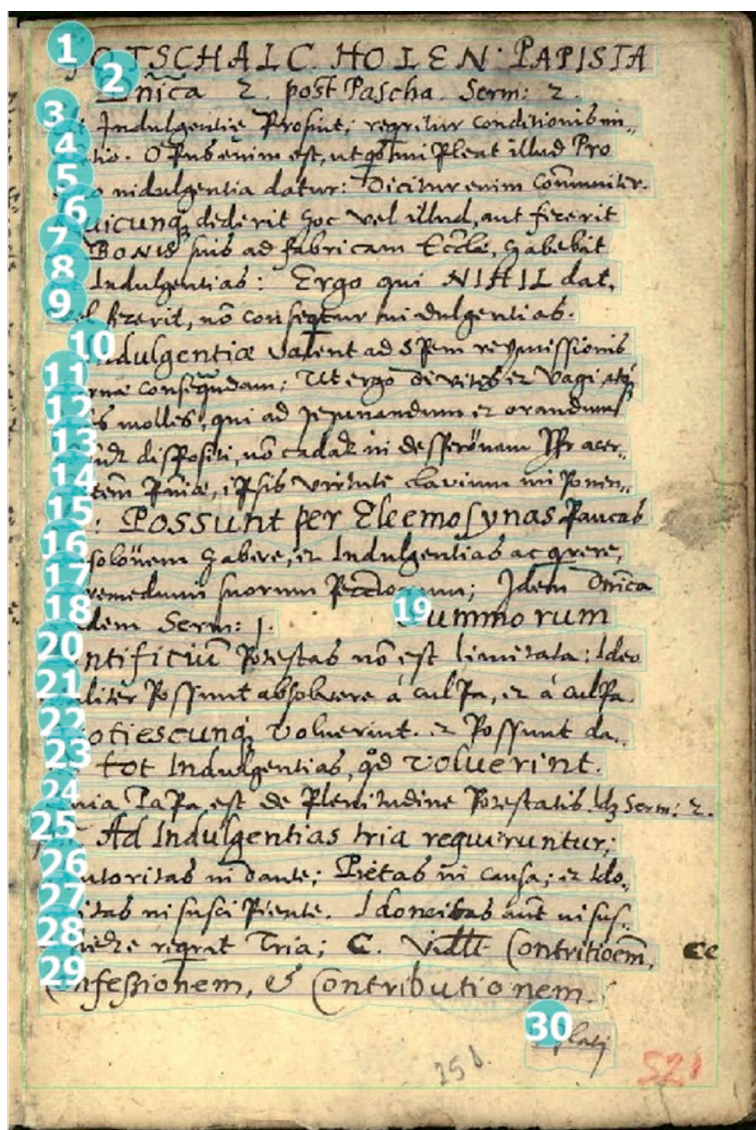 GOTSCHALC. HOLEN. PAPISTA
Dn̄ica 2. post Pascha. Serm: 2.
Indulgentie Prosint; reqritur conditionis im„
O Pus enim est, ut q̄s imPleat illud Pro
indulgentia datur: Dicitur enim Com̄uniter.
Quicunq; dederit hoc vel illud, aut fecerit
BONIS suis ad fabricam Eccl̄e, habebit
Indulgentias: Ergo qui NIHIL dat,
vel fecerit, nō conseq̄tur indulgentias.
Indulgentiæ valent ad sPem remissionis
conseqūdam; Ut ergo divites et vagi, atq;
molles, qui ad jejunandum et orandum
disPositi, nō cadāt in desPerōnem Pr̄ acer„
tem Pn̄iæ, iPsis virtute clavium imPonen„
: POSSUNT per Eleemosynas Paucas
solōnem habere, et Indulgentias acqrere,
remedium suorum Peccōrum; Idem Dn̄ica
eadem Serm: 1.
Summorum
Pontificiū Potestas nō est limitata: Ideo
Possunt absolvere á culPa, et á culPa
totiescunq; voluerint. et Possunt da„
tot Indulgentias, qd voluerint.
quia PaPa est de Plenitudine Potestatis. Idz Serm: 2.
Ad Indulgentias tria requiruntur;
Autoritas in dante; Pietas in causa; et Ido„
neitas in susciPiente. Idoneitas aut̄ in sus„
reqrit Tria; C. Vidlt Contritioem̄, Ce
Confeßionem, & Contributionem.
251.
521